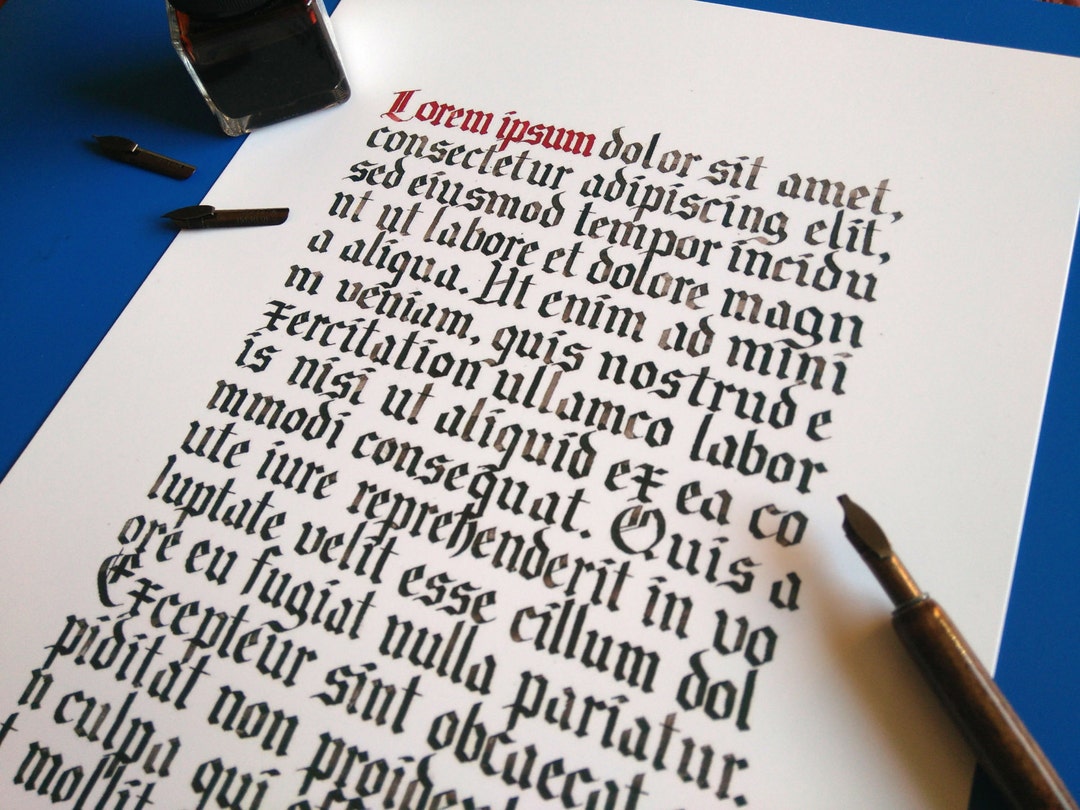 Lorem ipsum dolor sit amet,
consectetur adipiscing elit,
sed eiusmod tempor incidu
nt ut labore et dolore magn
a aliqua. Ut enim ad mini
m veniam, quis nostrud e
xercitation ullamco labor
is nisi ut aliquid ex ea co
mmodi consequat. Quis a
ute iure reprehenderit in vo
luptate velit esse cillum dol
ore eu fugiat nulla pariatur.
Excepteur sint obcaecat
piditat non proident
n culpa qui
mollit